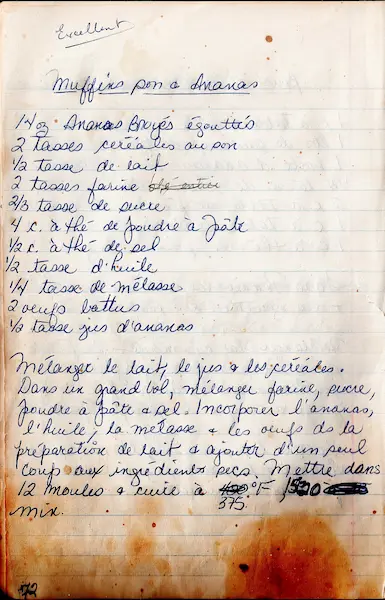 Excellent
Muffins son & Ananas
14 oz Ananas Broyés égouttés
2 tasses céréales au son
1/2 tasse de lait
2 tasses farine
2/3 tasse de sucre
4 c. à thé de poudre à pâte
1/2 c. à thé de sel
1/2 tasse d'huile
1/4 tasse de mélasse
2 oeufs battus
1/2 tasse jus d'ananas
Mélanger le lait, le jus & les céréales.
Dans un grand bol, mélanger farine, sucre,
poudre à pâte & sel. Incorporer l'ananas,
l'huile, la mélasse & les oeufs ds la
préparation de lait & ajouter d'un seul
coup aux ingrédients secs. Mettre dans
12 moules & cuire à 400 °F
375.
min.
72